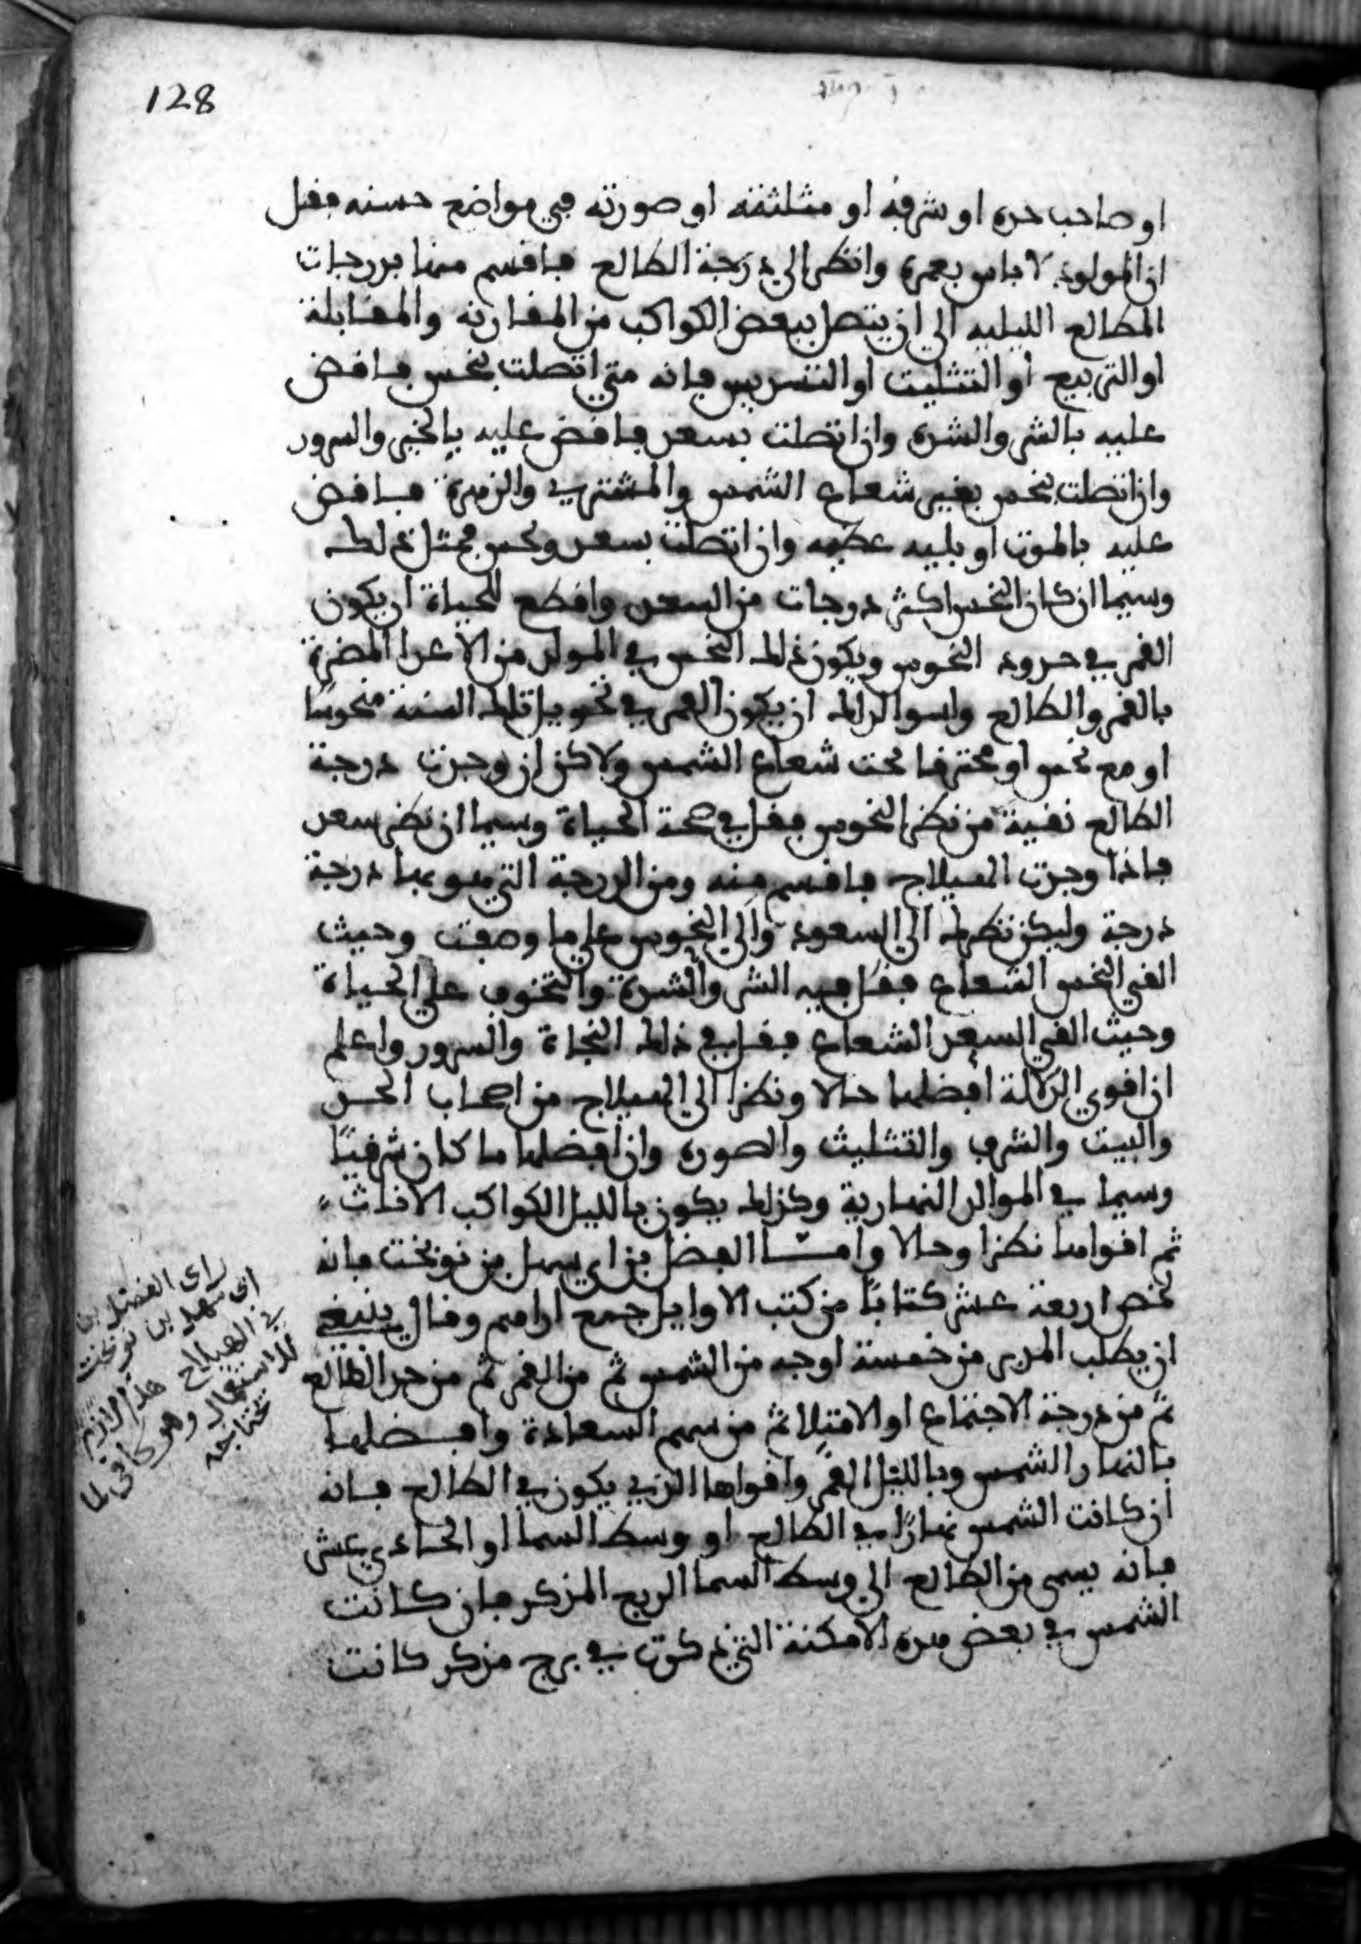 128
او صاحب حده او شرفه او مثلثته او صورته في مواضع حسنه فقل
ان المولود لا باس بعمره وانظر الي درجة الطالع فاقسم منها بدرجات
المطالع البلديه الي ان يتصل ببعض الكواكب من المقارنه والمقابلة
او التربيع او التثليث او التسديس فانه متي اتصلت بنحس فاقض
عليه بالشر والشدة وان اتصلت بسعد فاقض عليه بالخير والسرور
وان اتصلت بنحس بغير شعاع الشمس والمشتري والزهرة فاقض
عليه بالموت او بلييه عظيمه وان اتصلت بسعد ونحس فمثل ذلك
وسيما ان كان النحس اكثر درجات من السعد واقطع للحياة ان يكون
القمر في حدود النحوس ويكون ذلك النحس في المولد من الاعدا المضرة
بالقمر والطالع واسوا لذلك ان يكون القمر في تحويل تلك السنة منحوسا
او مع نحس او محترقا تحت شعاع الشمس ولاكن ان وجدت درجة
الطالع نقية من نظر النحوس فقل في صحة الحياة وسيما ان نظر سعد
فاذا وجدت الهيلاج فاقسم منه ومن الدرجة التي هو بها درجة
درجة وليكن نظرك الي السعود والي النحوس علي ما وصفت وحيث
القي النحس الشعاع فقل فيه الشر والشدة والتخوف علي الحياة
وحيث القي السعد الشعاع فقل في ذلك النجاة والسرور واعلم
ان اقوي الدلالة افضلها حالا ونظرا الي الهيلاج من اصحاب الحد
والبيت والشرف والتثليث والصوره وان افضلها ما كان شرقيا
وسيما في المواليد النهارية وكذلك يكون بالليل الكواكب الاناث
ثم اقواها نظرا وحالا وامـــا الفضل بن ابي سهل بن نوبخت فانه
لخص اربعة عشر كتابا من كتب الاوايل جمع اراهم وقال ينبغي
ان يطلب المدبر من خمسة اوجه من الشمس ثم من القمر ثم من حد الطالع
ثم من درجة الاجتماع او الامتلا ثم من سهم السعادة وافضلها
بالنهار الشمس وبالليل القمر واقواها الذي يكون في الطالع فانه
ان كانت الشمس نهارا في الطالع او وسط السما او الحادي عشر
فانه يسمى من الطالع الي وسط السما الربع المذكر فان كانت
الشمس في بعض هذه الامكنة التي ذكرت في برج مذكر كانت
راى الفضل بن
ابى سهل بن نوبخت
في الهيلاج هذا الازم
للاستعمال وهو كافى لما
تحتاجه